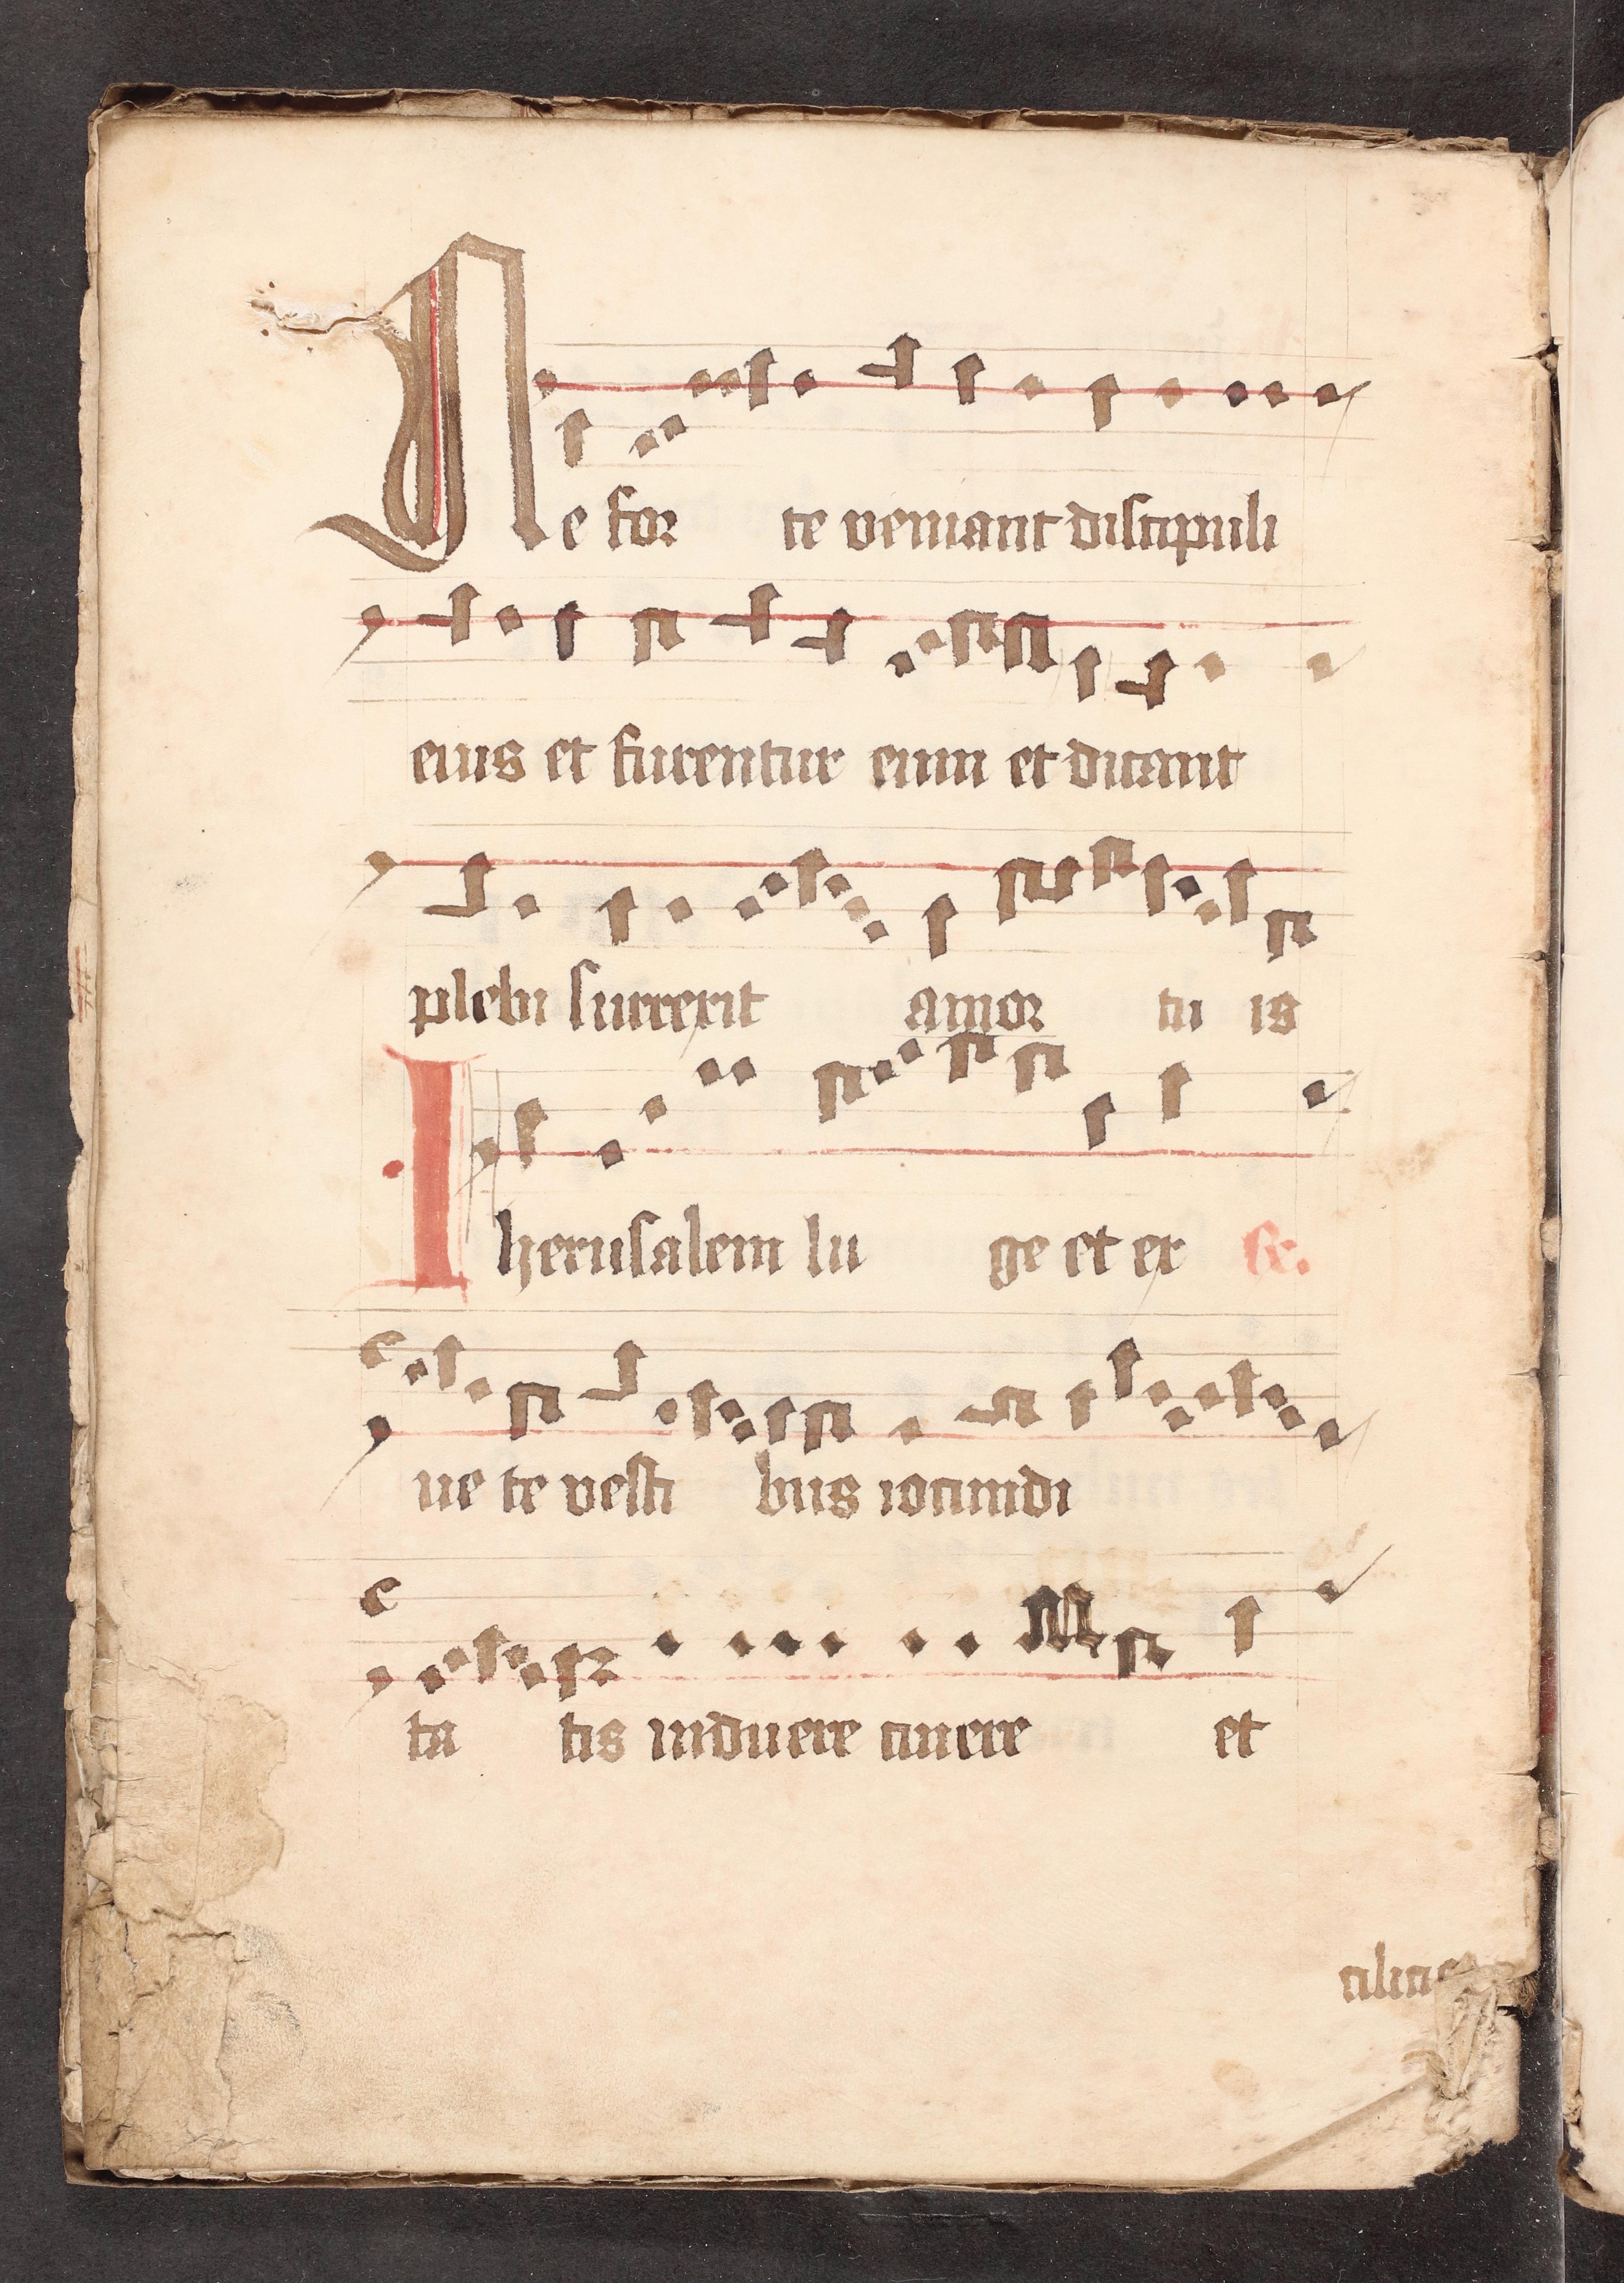 Ne for te veniant discipuli
eius et furentur eum et dicant
plebi surrexit amor tu is
Iherusalem lu ge et ex
ue te vesti bus iocundi
ta tis induere cinere et